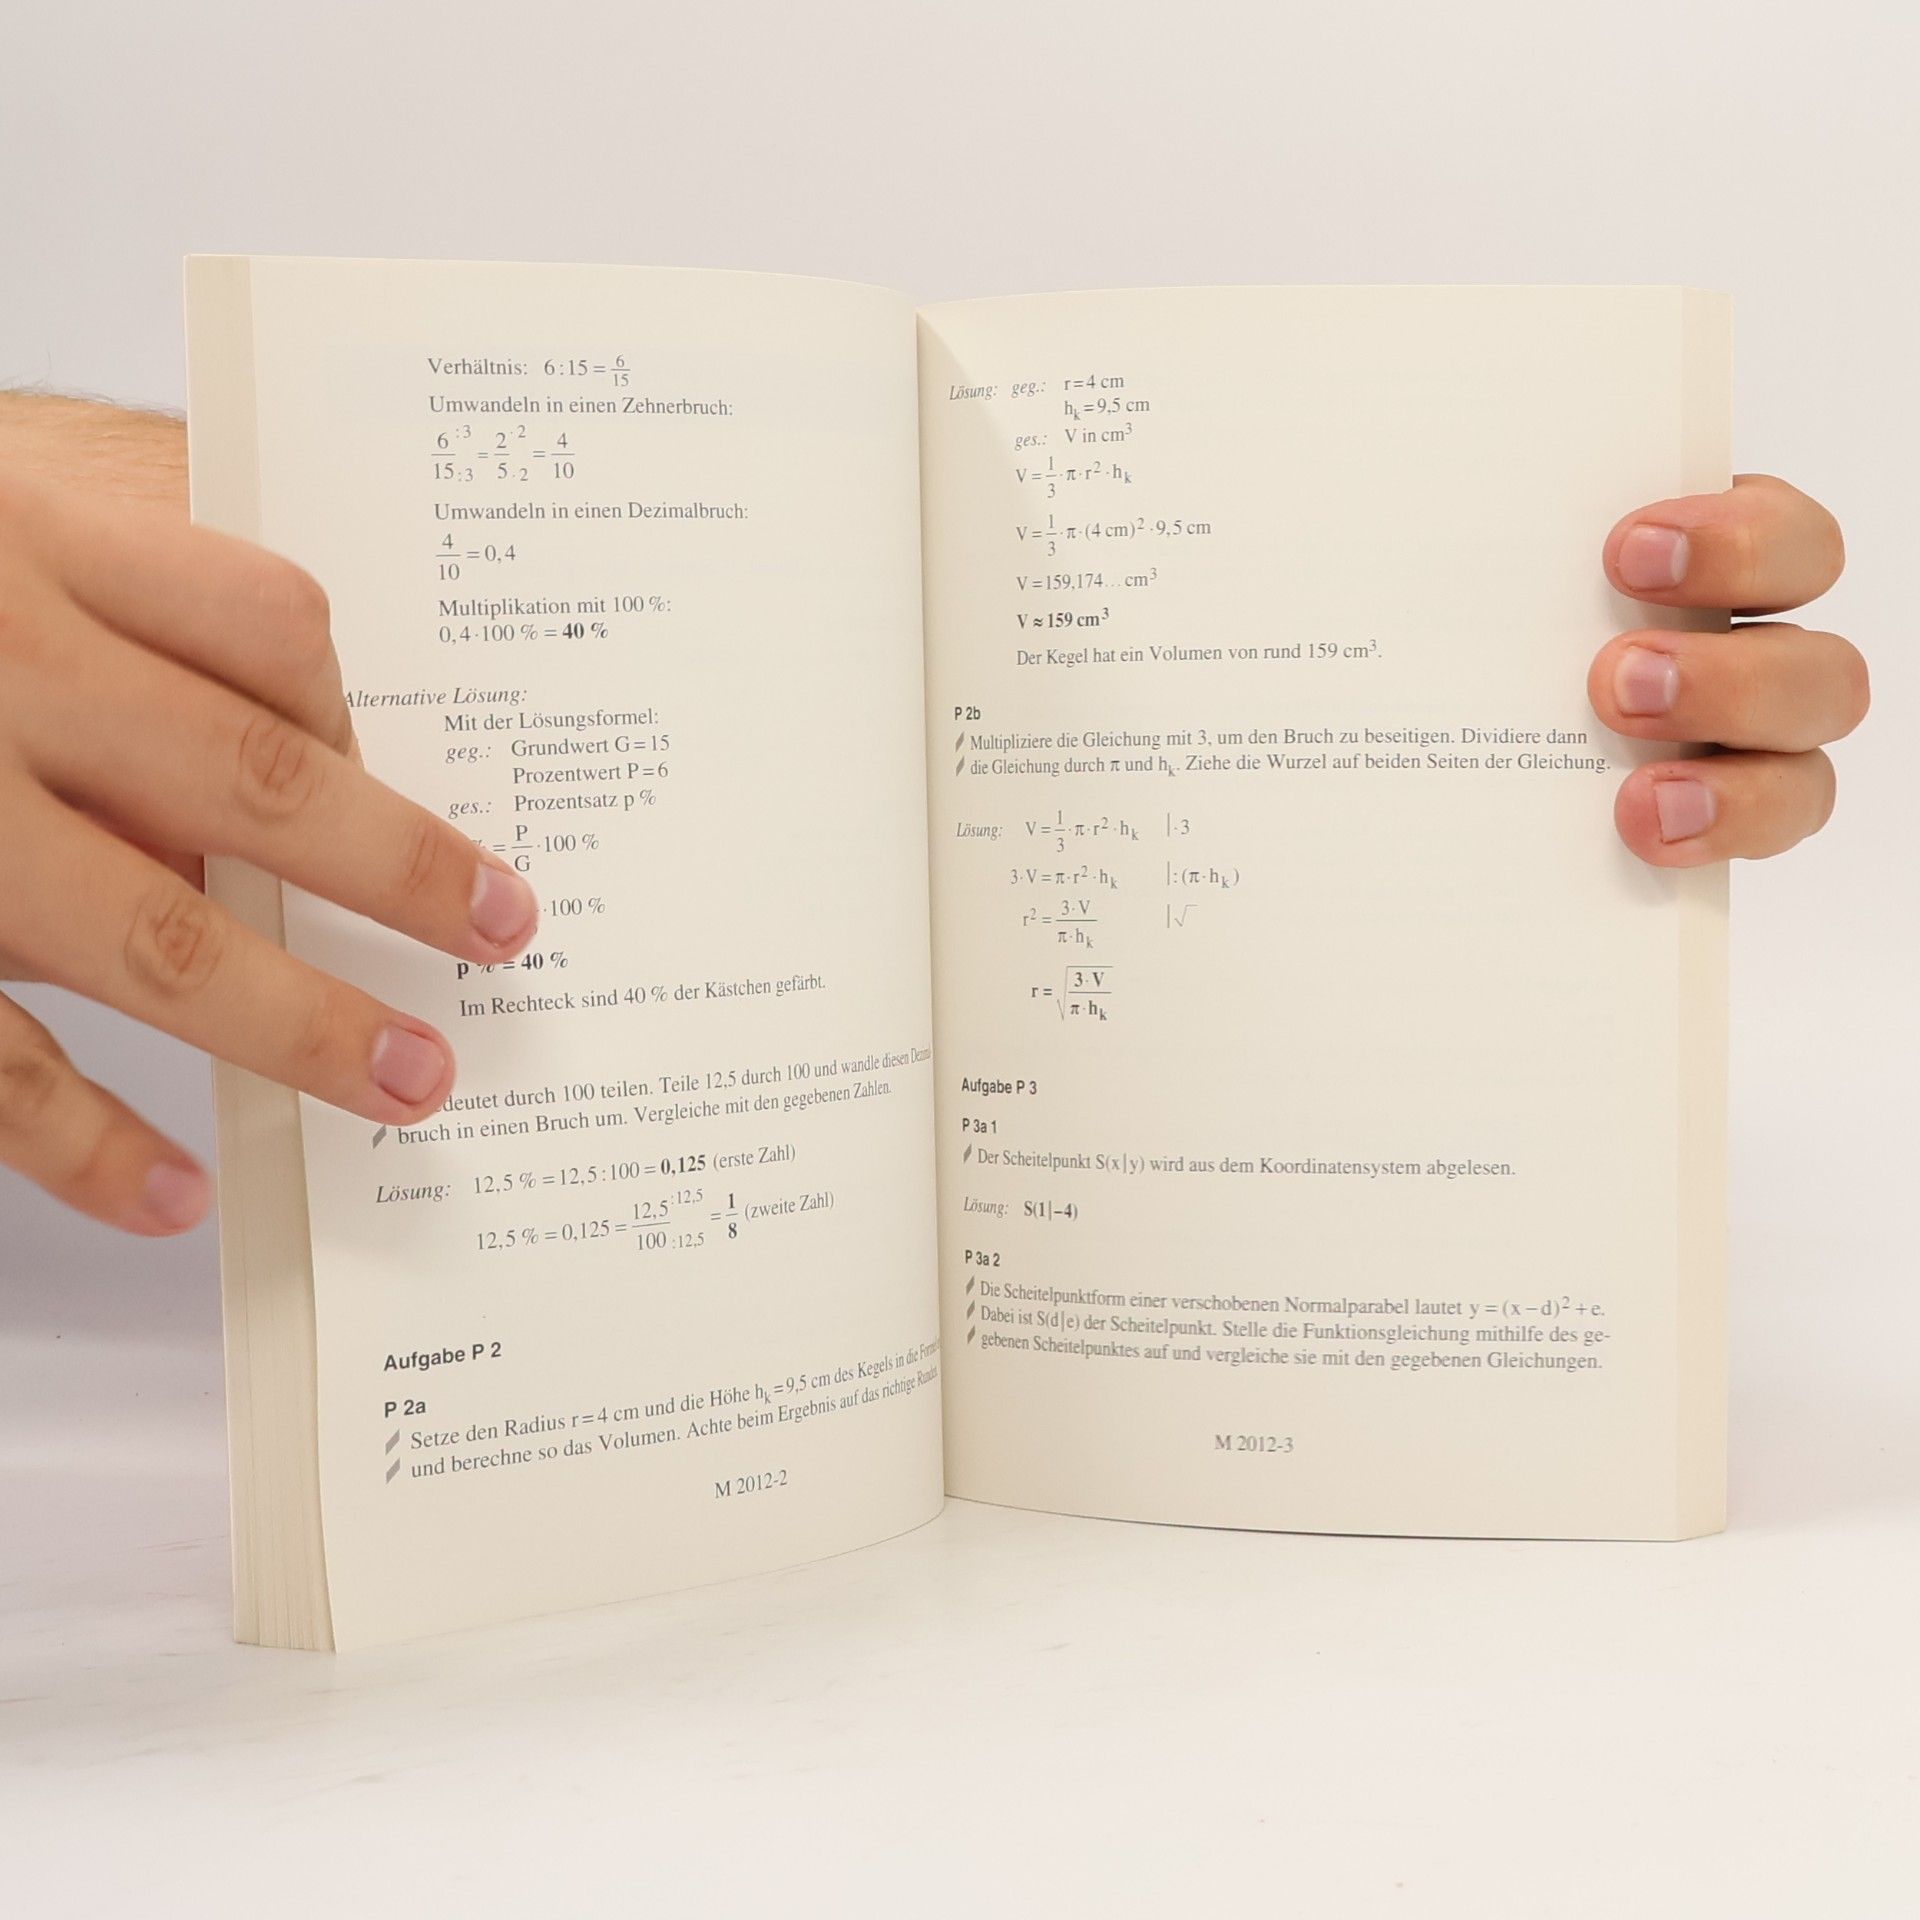 Verhältnis: 6:15 = 6/15
Umwandeln in einen Zehnerbruch:
6 :3 / 15 :3 = 2 ·2 / 5 ·2 = 4/10
Umwandeln in einen Dezimalbruch:
4/10 = 0,4
Multiplikation mit 100 %:
0,4·100 % = 40 %
Alternative Lösung:
Mit der Lösungsformel:
geg.: Grundwert G = 15
Prozentwert P = 6
ges.: Prozentsatz p %
= P/G · 100 %
· 100 %
p % = 40 %
Im Rechteck sind 40 % der Kästchen gefärbt.
durch 100 teilen. Teile 12,5 durch 100 und wandle diesen
bruch in einen Bruch um. Vergleiche mit den gegebenen Zahlen.
Lösung: 12,5 % = 12,5 : 100 = 0,125 (erste Zahl)
12,5 % = 0,125 = 12,5 :12,5 / 100 :12,5 = 1/8 (zweite Zahl)
Aufgabe P 2
P 2a
Setze den Radius r = 4 cm und die Höhe hk = 9,5 cm des Kegels in die
und berechne so das Volumen. Achte beim Ergebnis auf das richtige
M 2012-2
Lösung: geg.: r = 4 cm
hk = 9,5 cm
ges.: V in cm³
V = 1/3 · π · r² · hk
V = 1/3 · π · (4 cm)² · 9,5 cm
V = 159,174... cm³
V ≈ 159 cm³
Der Kegel hat ein Volumen von rund 159 cm³.
P 2b
Multipliziere die Gleichung mit 3, um den Bruch zu beseitigen. Dividiere dann
die Gleichung durch π und hk. Ziehe die Wurzel auf beiden Seiten der Gleichung.
Lösung: V = 1/3 · π · r² · hk | · 3
3 · V = π · r² · hk | : (π · hk)
r² = 3·V / π·hk | √
r = √(3·V / π·hk)
Aufgabe P 3
P 3a 1
Der Scheitelpunkt S(x|y) wird aus dem Koordinatensystem abgelesen.
Lösung: S(1|–4)
P 3a 2
Die Scheitelpunktform einer verschobenen Normalparabel lautet y = (x – d)² + e.
Dabei ist S(d|e) der Scheitelpunkt. Stelle die Funktionsgleichung mithilfe des ge-
gebenen Scheitelpunktes auf und vergleiche sie mit den gegebenen Gleichungen.
M 2012-3